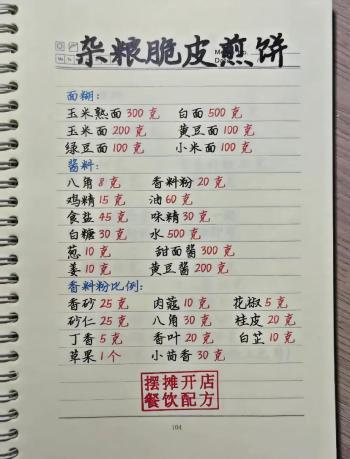 杂粮脆皮煎饼
面糊:
玉米熟面 300 克 白面 500 克
玉米面 200 克 黄豆面 100 克
绿豆面 100 克 小米面 100 克
酱料:
八角 8 克 香料粉 20 克
鸡精 15 克 油 60 克
食盐 45 克 味精 30 克
白糖 30 克 水 500 克
葱 10 克 甜面酱 300 克
姜 10 克 黄豆酱 200 克
香料粉比例:
香砂 25 克 肉蔻 10 克 花椒 5 克
砂仁 25 克 八角 30 克 桂皮 20 克
丁香 5 克 香叶 20 克 白芷 10 克
草果 1 个 小茴香 30 克
摆摊开店
餐饮配方
104